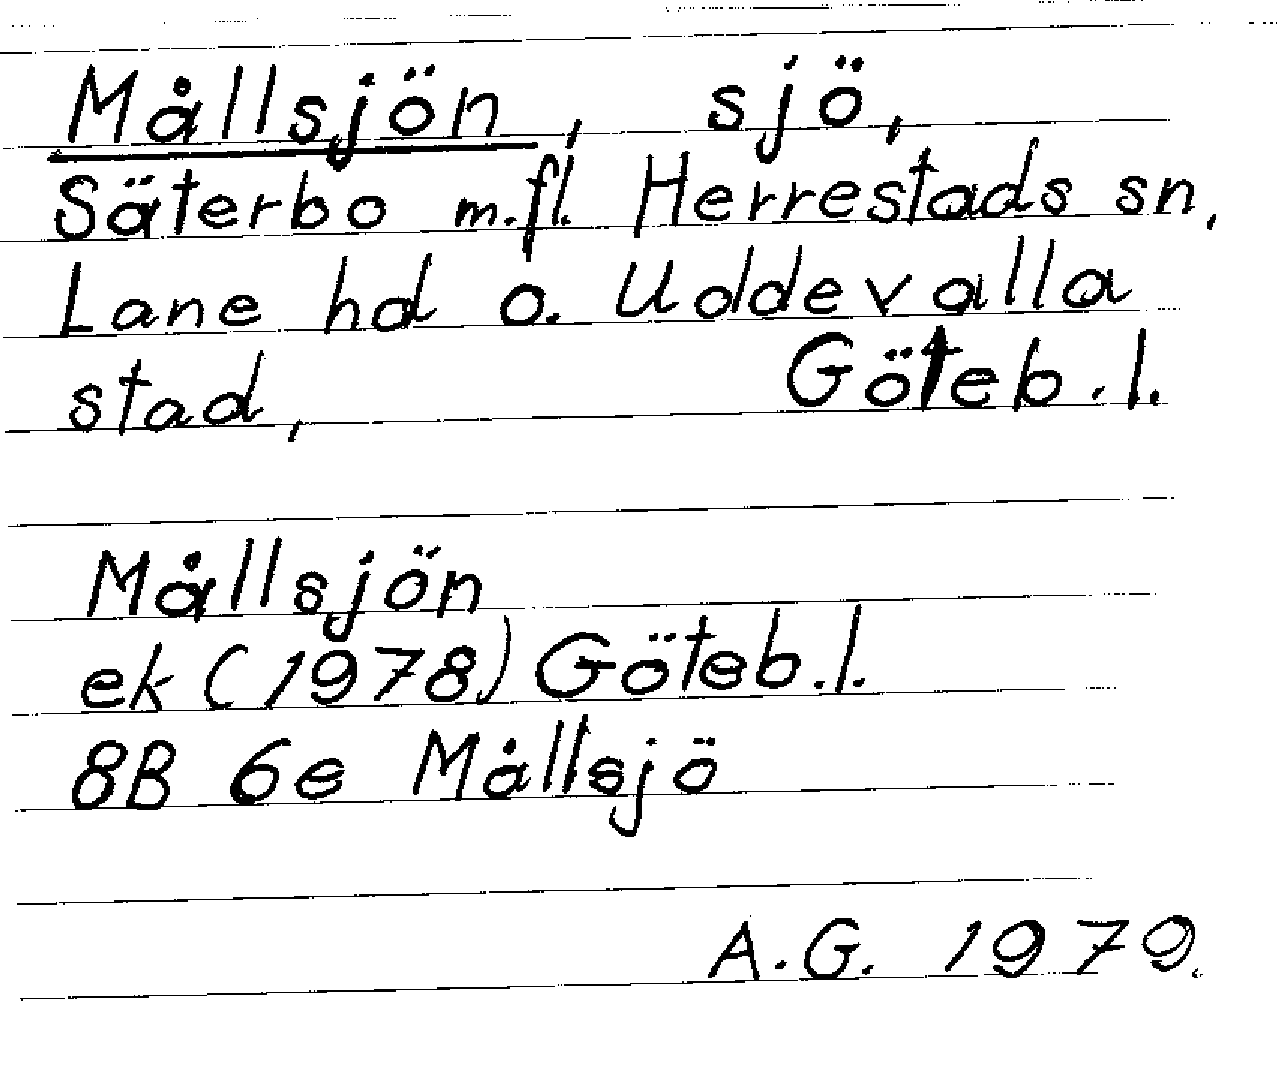 Mållsjön, sjö,
Säterbo m.fl. Herrestads sn,
Lane hd o. Uddevalla
stad, Göteb.l.
Mållsjön
ek (1978) Göteb.l.
8B 6e Mållsjö
A.G. 1979.